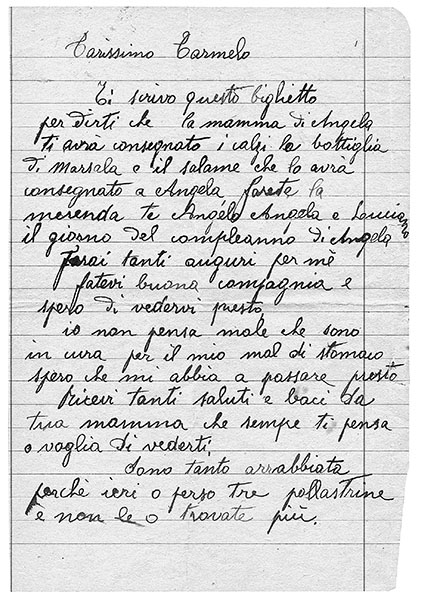 Carissimo Carmelo
Ti scrivo questo biglietto
per dirti che la mamma di Angela
ti avrà consegnato i calzi la bottiglia
di Marsala e il salame che lo avrà
consegnato a Angela farete la
merenda te Angelo Angela e Luciano
il giorno del compleanno di Angela
Farai tanti auguri per mè
fatevi buona compagnia e
spero di vedervi presto,
io non pensa male che sono
in cura per il mio mal di stomaco
spero che mi abbia a passare presto
Ricevi tanti saluti e baci da
tua mamma che sempe ti pensa
o voglia di vederti,
Sono tanto arrabbiata
perchè ieri o perso tre pollastrine
e non le o trovate più.